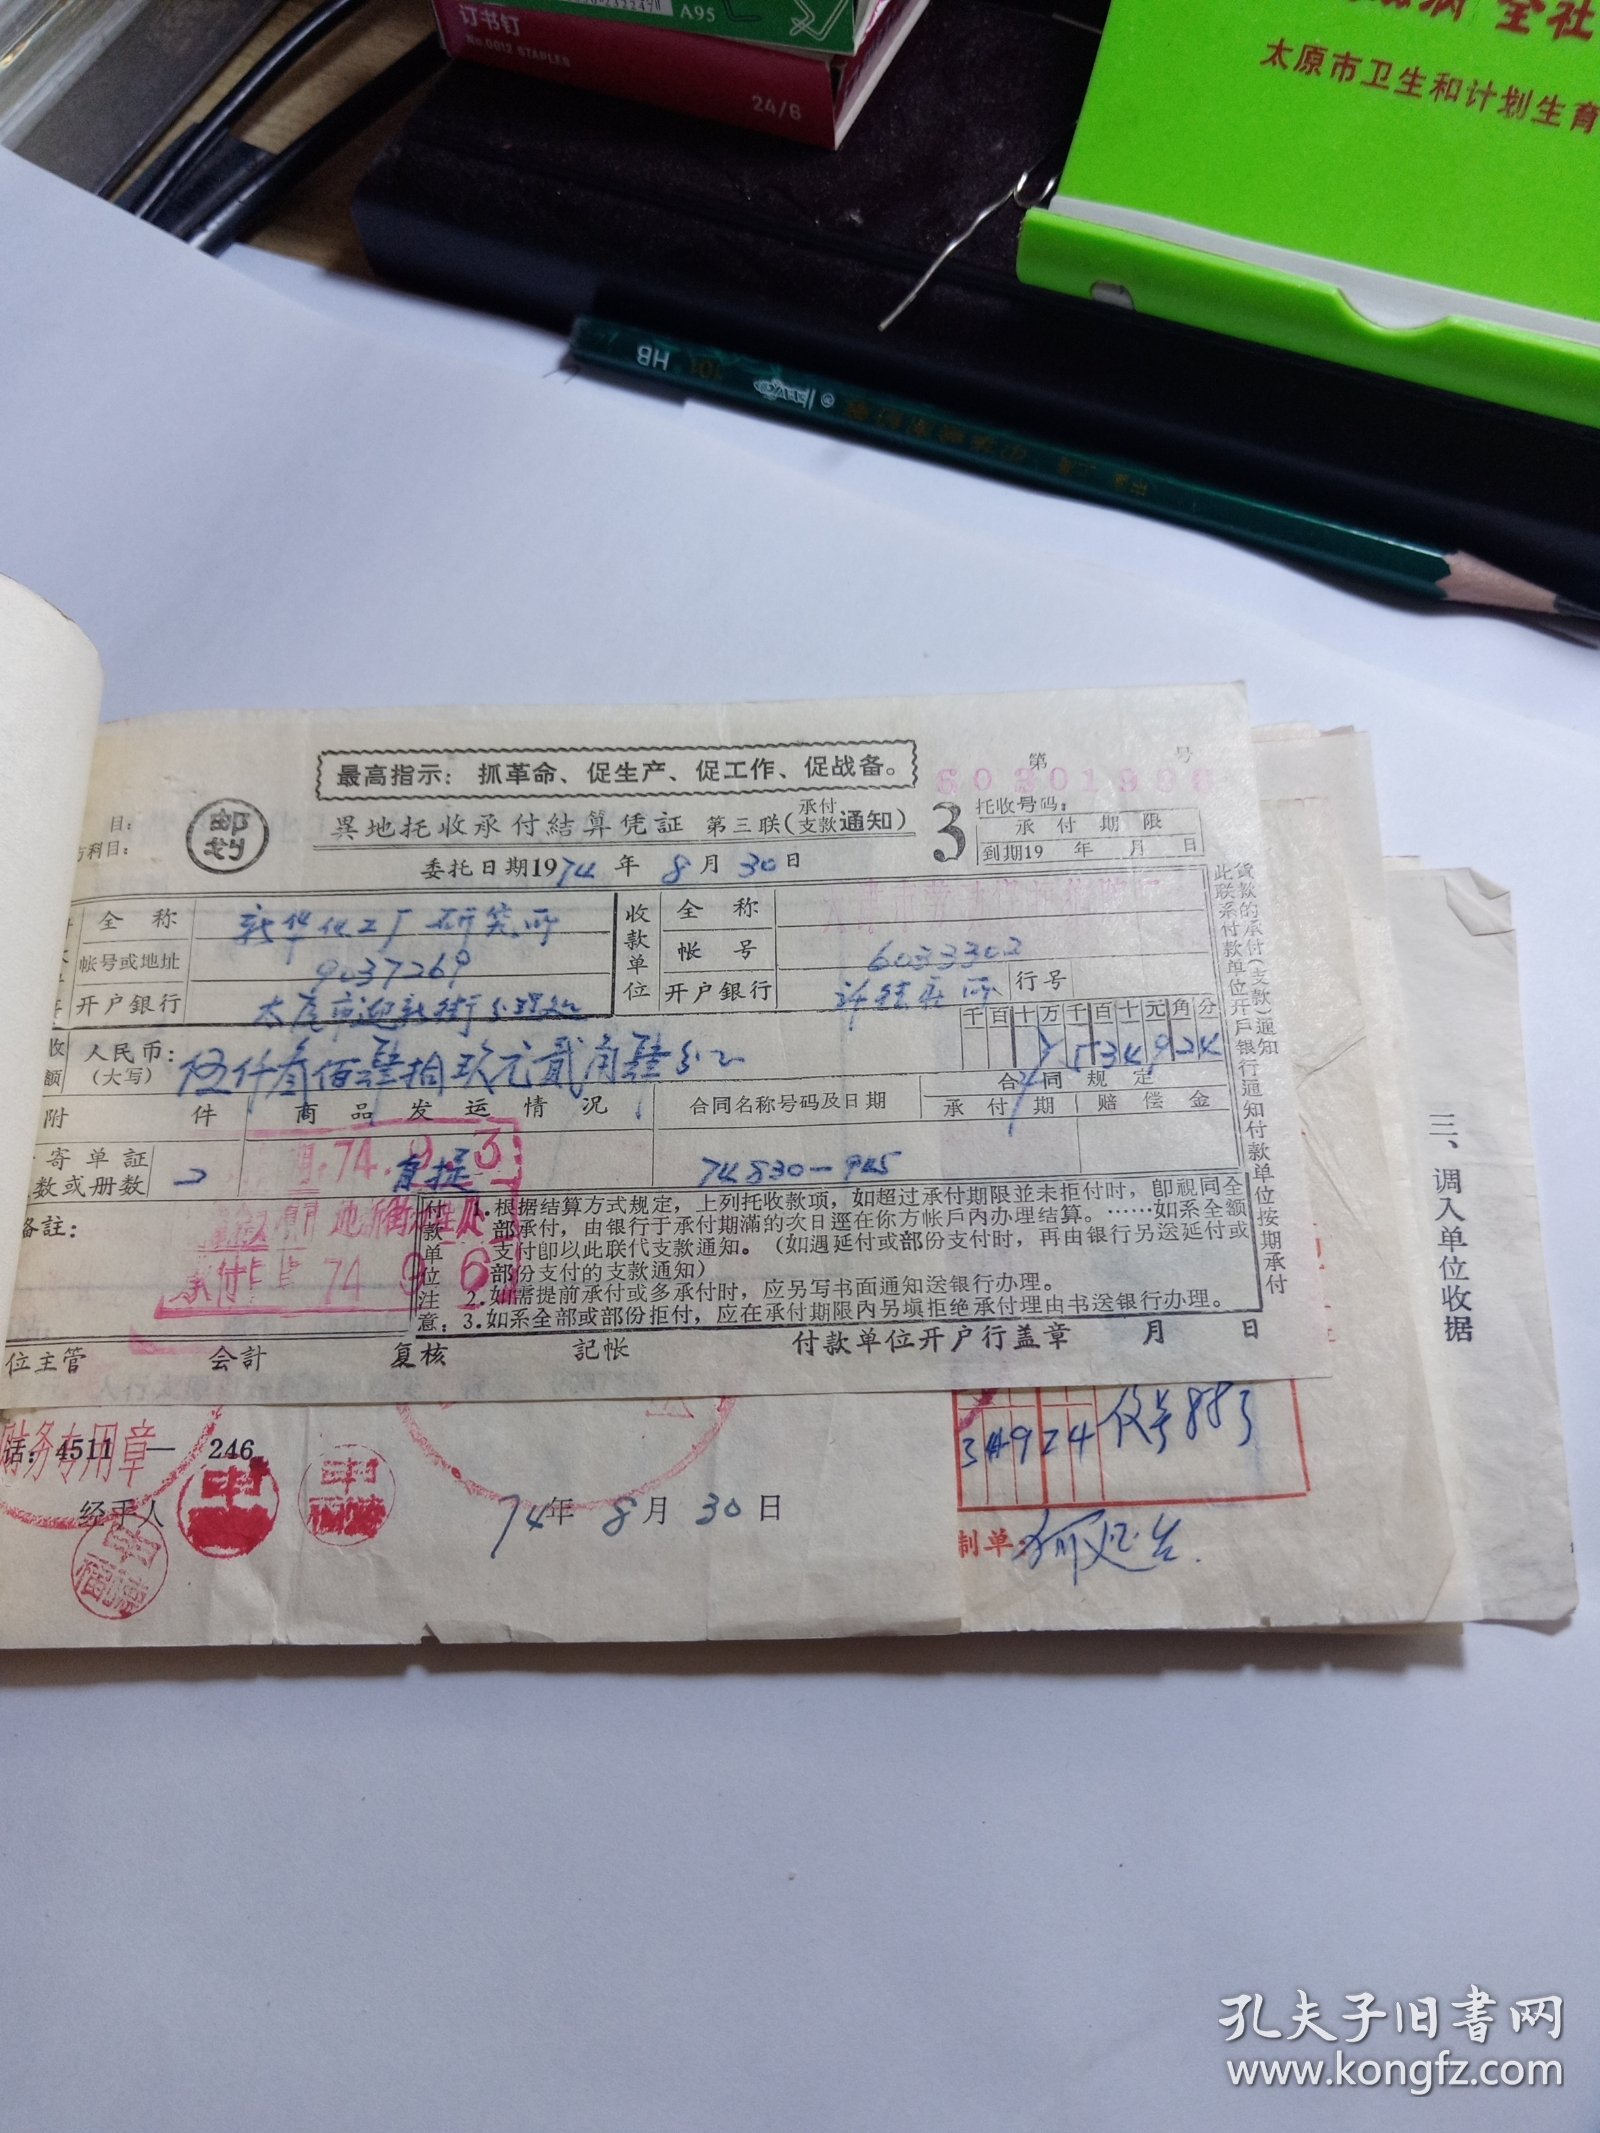 A95
订书钉
No.0012 STAPLES
24/6
全社
太原市卫生和计划生育
HB
101
最高指示：抓革命、促生产、促工作、促战备。
第 号
60301986
邮划
目：
方科目：
異地托收承付結算凭証 第三联（承付支款通知）
3
托收号码：
承付期限
到期19 年 月 日
委托日期1974年8月30日
全称 新华化工厂研究所
帐号或地址 9037269
开户銀行 太原市迎新街分理处
收款单位
全称
帐号 6033302
开户銀行
行号
人民币：（大写） 伍仟叁佰肆拾玖元貳角肆分
千百十万千百十元角分
￥534924
附件
商品发运情况
合同名称号码及日期
合同规定
承付期
赔偿金
寄单証
数或册数
2
自提
74830—945
74.9.3
74 9 6
备註：
付款单位注意：
1.根据结算方式规定，上列托收款项，如超过承付期限並未拒付时，卽視同全
部承付，由银行于承付期滿的次日逕在你方帐戶內办理结算。……如系全额
支付卽以此联代支款通知。（如遇延付或部份支付时，再由银行另送延付或
部份支付的支款通知）
2.如需提前承付或多承付时，应另写书面通知送银行办理。
3.如系全部或部份拒付，应在承付期限内另填拒绝承付理由书送银行办理。
此联系付款单位开戶银行通知付款单位按期承付
貨款的承付（支款）通知
位主管 会計 复核 記帐 付款单位开户行盖章 月 日
财务专用章
话：4511 — 246
经手人
74年8月30日
34924
制单：
三、调入单位收据
孔夫子旧書网
www.kongfz.com